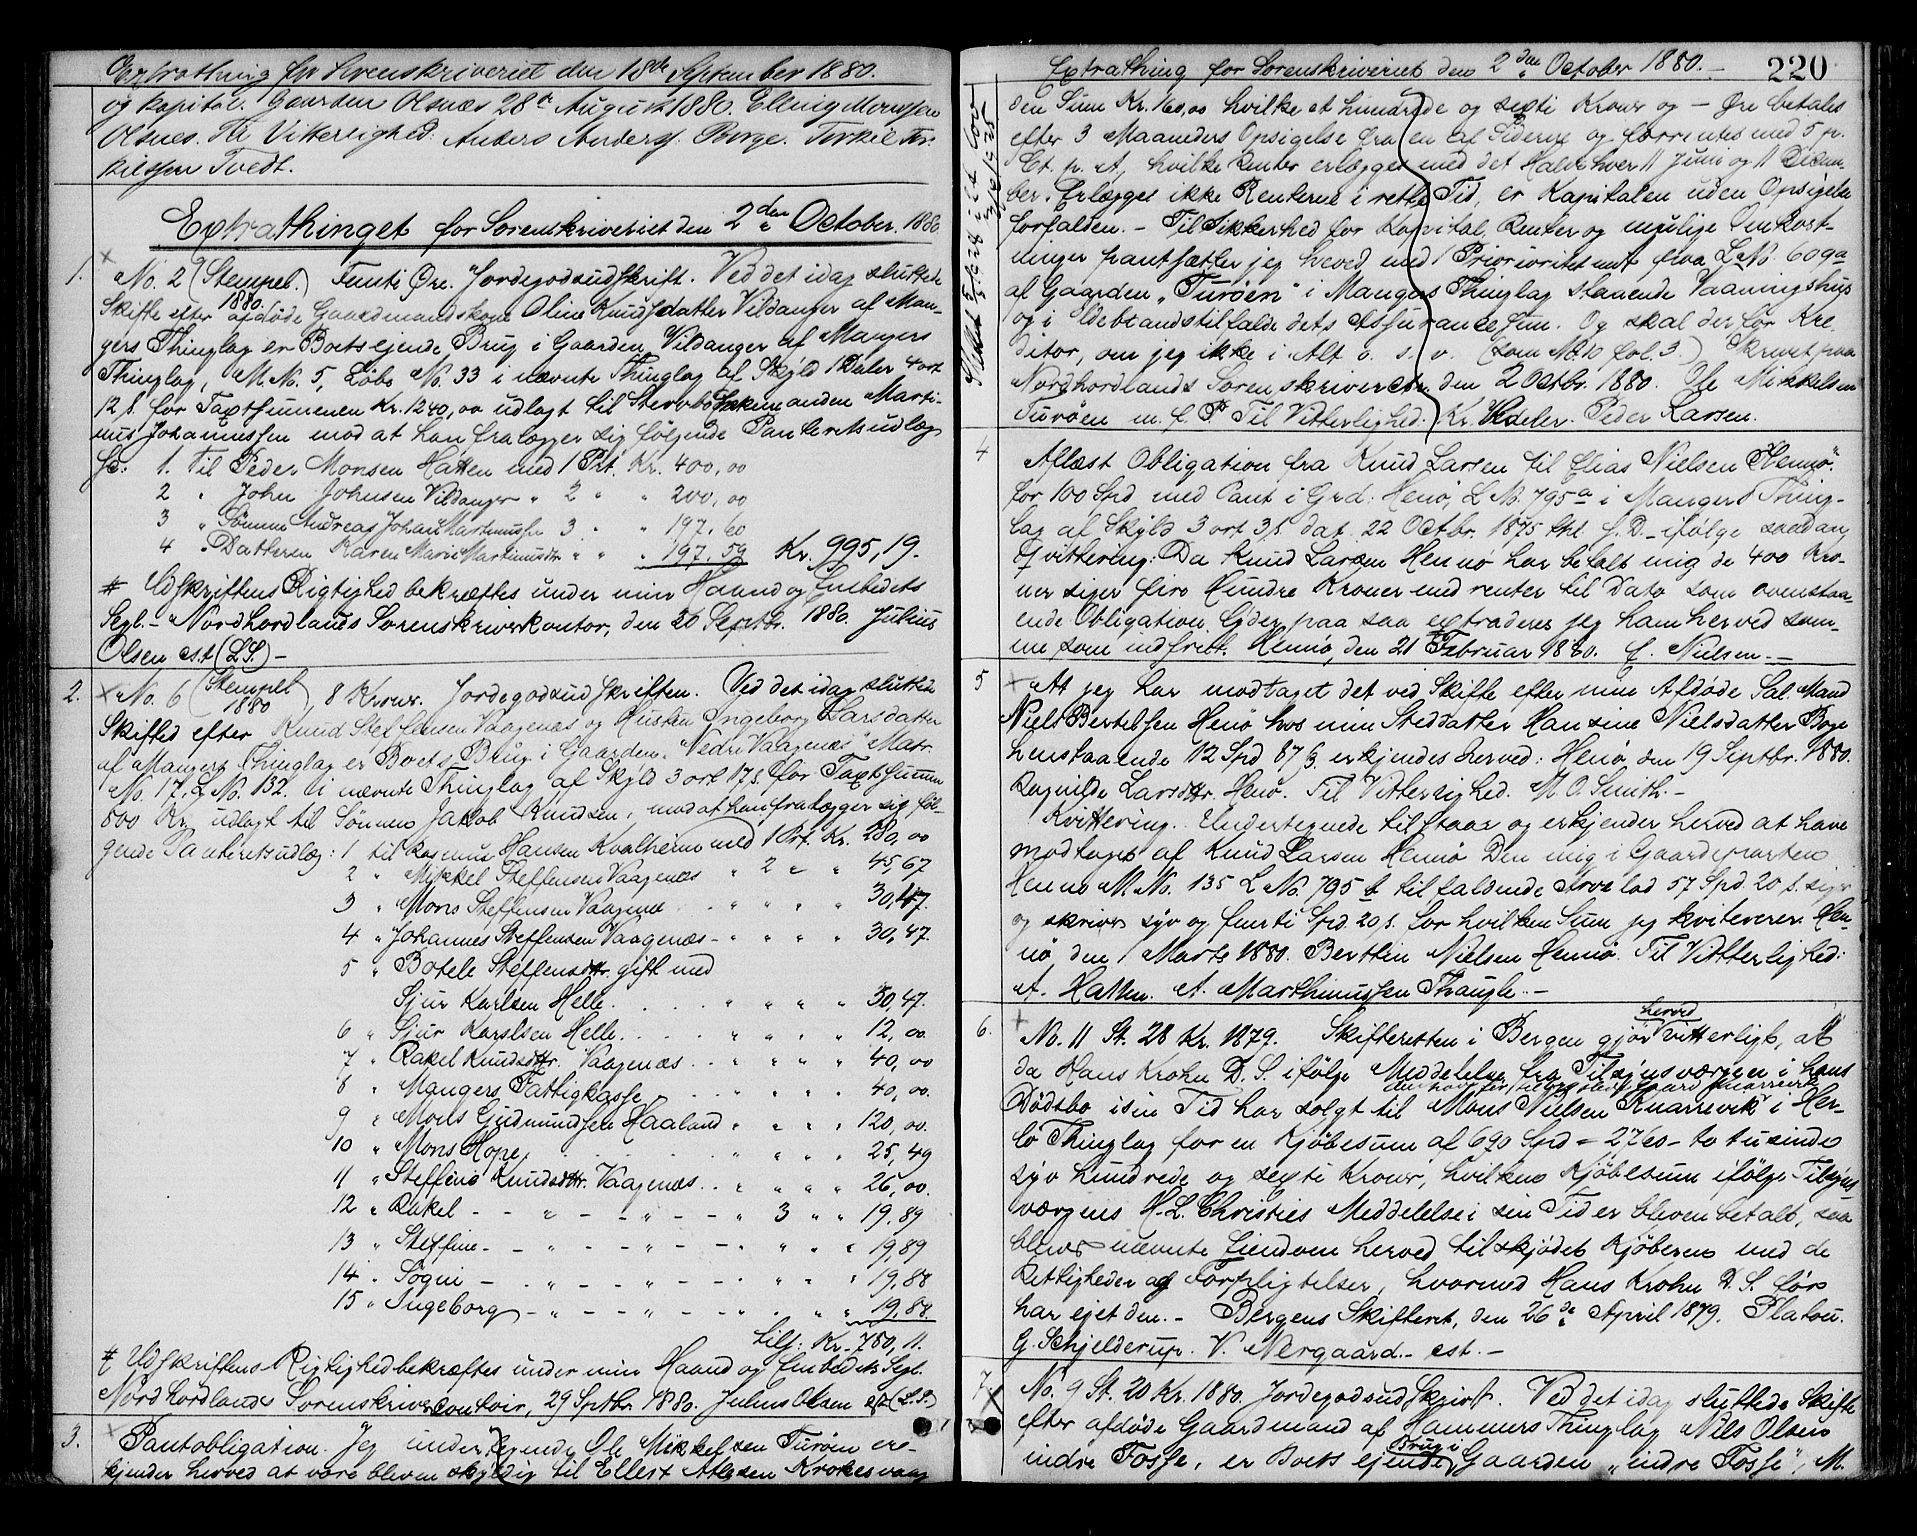 Extrathing for Sorenskriveriet den 18de September 1880.
og kapital. Gaarden Olsnæs 28de August 1880. Elling Monssen
Olsnes. Til Vitterlighed. Anders Anders. Borge. Torkil Tor-
kilssen Tvedt.
Extrathinget for Sorenskriveriet den 2den October 1880
1. No. 2 (Stempel 1880.) Femti Øre. Jordegodsudskrift. Ved det idag sluttede
Skifte efter afdøde Gaardmandskone Oline Knudsdatter Vildanger af Man-
gers Thinglag er Boets ejende Brug i Gaarden Vildanger af Mangers
Thinglag, M. No. 5, Løbe No. 33 i nævnte Thinglag af Skyld 1 Daler 4 ort
12 s. for Taxtsummen Kr. 1240,00 udlagt til Stervboenkemanden Marti-
nus Johannessen mod at han fralægger sig følgende Panteretsudlæg
1. Til Peder Monsen Hatten med 1 Prt. Kr. 400,00
2 " John Johnsen Vildanger " 2 " " 200,00
3 " Sønnen Andreas Johan Martinussen 3 " " 197,60
4 " Datteren Karen Marie Martinusdtr " " " 197,59 Kr. 995,19.
# Udskriftens Rigtighed bekræftes under min Haand og Embedets
Segl. - Nordhordlands Sorenskriverkontor, den 20 Septbr. 1880. Julius
Olsen cst (L.S.) -
2. No. 6 (Stempel 1880), 8 Kroner. Jordegodsudskriften. Ved det idag sluttede
Skifted efter Knud Steffensen Vaagenæs og Hustru Ingeborg Larsdatter
af Mangers Thinglag er Boets Brug i Gaarden "Nedre Vaagenæs" Matr.
No. 17, L No. 132. i nævnte Thinglag af Skyld 3 ort 17 s. for Taxtsummen
800 Kr. udlagt til Sønnen Jakob Knudsen, mod at han fralægger sig føl-
gende Panteretsudlæg: 1 til Rasmus Hansen Kvalheim med 1 Prt. Kr. 280,00
2 " Mikkel Steffensen Vaagenæs " 2 " " 45,67
3 " Mons Steffensen Vaagenæs " " " " 30,47.
4 " Johannes Steffensen Vaagenæs - " " " " 30,47.
5 " Botele Steffensdtr. gift med
Sjur Karlsen Helle . . . " " " " 30,47.
6 " Sjur Karlsen Helle. . . . " " " " 12,00.
7 " Rakel Knudsdtr. Vaagenæs . . " " " " 40,00
8 " Mangers Fattigkasse, . . . " " " " 40,00.
9 " Mons Gudmundsen Haaland " " " " 120,00.
10 " Mons Hope, . . . . " " " " 25,49
11 " Steffine Knudsdtr. Vaagenæs . . " " " " 26,00.
12 " Rakel - - " - - " - - " 3 " " 19,89
13 " Steffine - - " - - " - - " " " " 19,89
14 " Sogni - - " - - " - - " " " " 19,88
15 " Ingeborg - " - - " - - " " " " 19,88.
tils: Kr. 780,11.
# Udskriftens Rigtighed bekræftes under min Haand og Embedets Segl.
Nordhordlands Sorenskrivercontoir, 29 Septbr 1880. Julius Olsen cst (L.S.)
3. Pantobligation. Jeg undertegnede Ole Mikkelsen Turøen er-
kjender herved at være bleven skyldig til Ellert Atlesen Krokesvaag
Extrathing for Sorenskriveriet den 2den October 1880. 220
den Sum Kr. 160,00 hvilke et hundrede og sexti Kroner og - Øre betales
efter 3 Maaneders Opsigelse fra en af Siderne og forrentes med 5 p.
Ct. p. A, hvilke Renter erlægges med det Halve hver 11 Juni og 11 Decem-
ber. Erlægges ikke Renterne i rette Tid, er Kapitalen uden Opsigelse
forfalden. - Til Sikkerhed for Kapital, Renter og mulige Omkost-
ninger pantsætter jeg herved med 1 Prioritet mit paa L No. 609a
af Gaarden "Turøen" i Mangers Thinglag staaende Vaaningshus
og i Ildebrandstilfælde dets Assurancesum. Og skal derfor Kre-
ditor, om jeg ikke i Alt o. s. v. (som No. 10 fol. 3) Skrevet paa
Nordhordlands Sorenskriverctr. den 2 Octbr. 1880. Ole Mikkelsen
Turøen m. f. P. Til Vitterlighed: Kr. Vedeler. Peder Larsen.
4 Aflæst Obligation fra Knud Larsen til Elias Nielsen Hennø.
for 100 Spd med Pant i Grd: Henø, L No. 795a i Mangers Thing-
lag af Skyld 3 ort 3 s. dat. 22 Octbr. 1875 thl. s. D. - ifølge saadan
Qvittering: Da Knud Larsen Hennø har betalt mig de 400 Kro-
ner siger fire Hundre Kroner med renter til Dato som ovenstaa-
ende Obligation lyder paa saa extraderes jeg ham herved sam-
me som indfriet. Hennø, den 21 Februar 1880. E. Nielsen. -
5 At jeg har modtaget det ved Skifte efter min Afdøde Sal. Mand
Niels Bertelsen Henø hos min Steddatter Hansine Nielsdatter Boge
henstaaende 12 Spd 87 s. erkjendes herved: Henø, den 19 Septbr. 1880.
Ragnilde Larsdtr. Henø. Til Vitterlighed. M. O. Smith. -
Kvittering. Undertegnede tilstaar og erkjender herved at have
modtaget af Knud Larsen Hennø Den mig i Gaardeparten
Hennø M No. 135 L No. 795b tilfaldende Arvelod 57 Spd 20 s. siger
og skriver syv og femti Spd. 20 s. for hvilken Sum jeg kviterer. Hen-
nø, den 1 Marts 1880. Berthin Nielsen Hennø. Til Vitterlighed:
A. Hatten. A. Marthinussen Thaugle. -
6. No. 11 St. 28 Kr. 1879. Skifteretten i Bergen gjør herved vitterligt, at
da Hans Krohn D. S. ifølge Meddelelse fra Tilsynsværgen i hans
Dødsbo i sin Tid har solgt til Mons Nielsen Knarrevik i Her-
lø Thinglag for en Kjøbesum af 690 Spd = 2760 - to tusinde
syv hundrede og sexti Kroner, hvilken Kjøbesum ifølge Tilsyns-
værgens H. L. Christies Meddelelse i sin Tid er bleven betalt, saa
bliver nævnte Eiendom herved tilskjødet Kjøberen med de
Rettigheder og Forpligtelser, hvormed Hans Krohn D. S. før
har ejet den. - Bergens Skifteret, den 26de April 1879. Platou.
G. Schjelderup. V. Nergaard. - cst. -
7 No. 9 St. 20 Kr. 1880. Jordegodsudskrift. Ved det idag sluttede Skifte
efter afdøde Gaardmand af Hammers Thinglag Nils Olsen
indre Fosse, er Boets ejende Brug i Gaarden "indre Fosse", M.